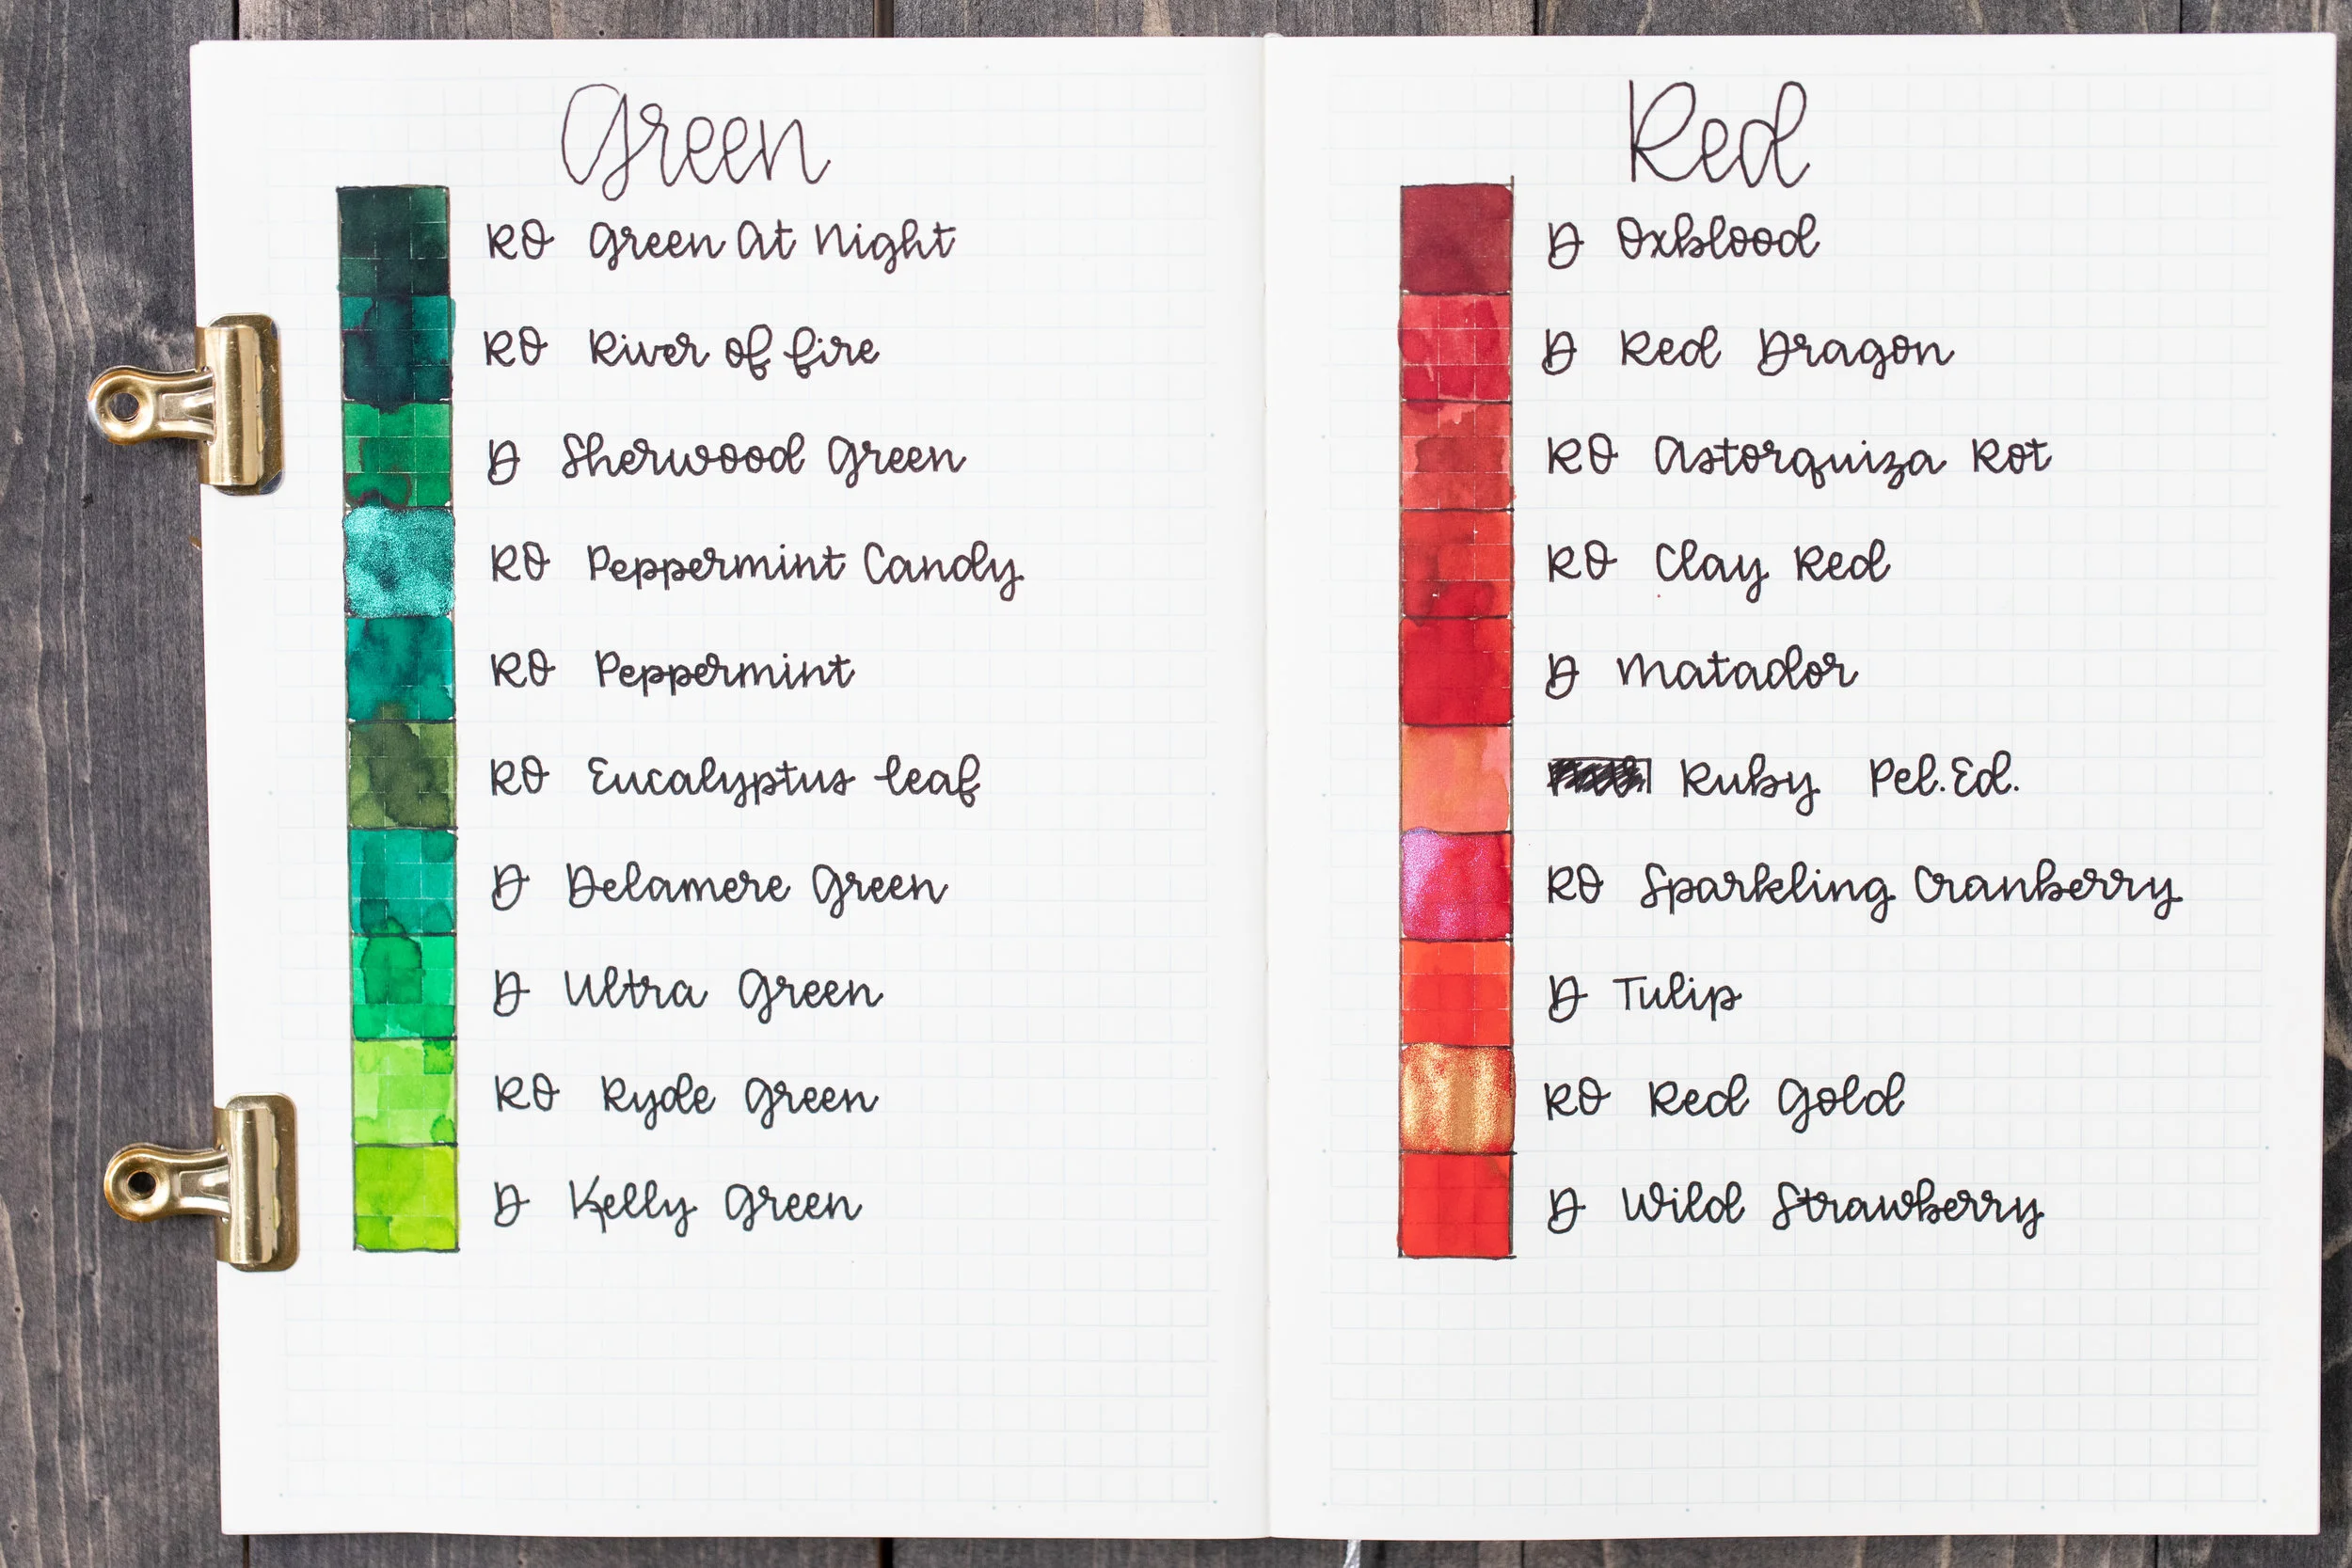 Green
RO Green At Night
RO River of fire
D Sherwood Green
RO Peppermint Candy
RO Peppermint
RO Eucalyptus leaf
D Delamere Green
D Ultra Green
RO Ryde Green
D Kelly Green
Red
D Oxblood
D Red Dragon
RO Astorquiza Rot
RO Clay Red
D Matador
Ruby Pel. Ed.
RO Sparkling Cranberry
D Tulip
RO Red Gold
D Wild Strawberry